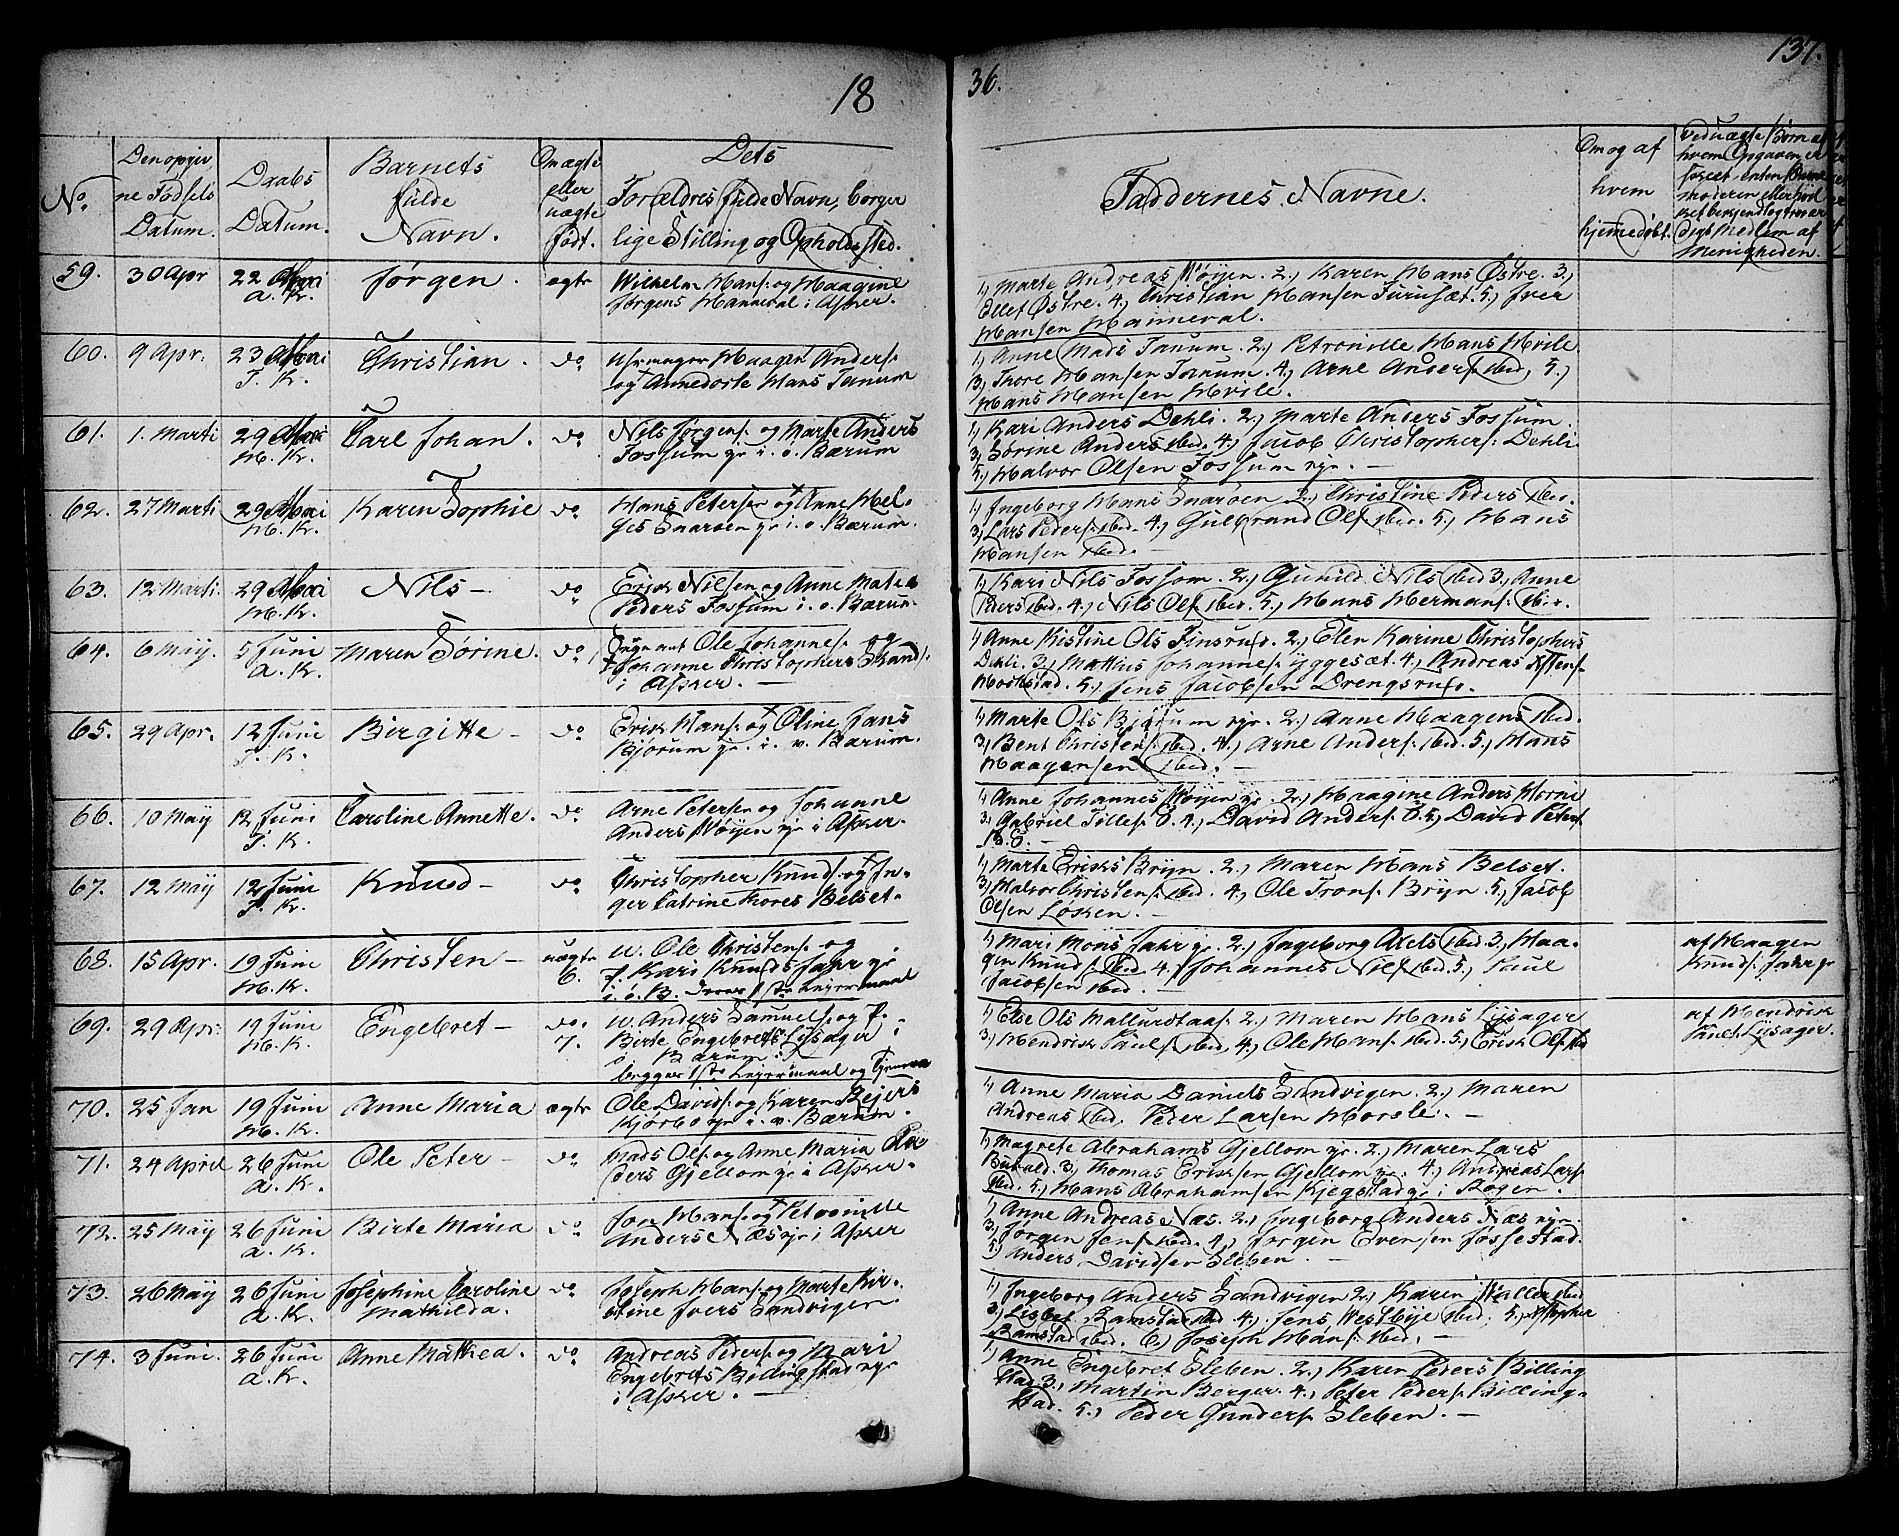 18
36.
137.
No.
Den opgiv
ne Fødsels
Datum.
Daabs
Datum.
Barnets
fulde
Navn.
Om ægte
eller
uægte
født.
Dets
Forældres fulde Navn, borger
lige Stilling, og Opholdssted.
Faddernes Navne.
Om og af
hvem
hjemmedøbt.
Ved uægte Børn af
hvem Opgaven er
skeet, enten Barne
moderen eller hvil
ket bekjendt og trovær
digt Medlem af
Menigheden.
59. 30 Apr 22 Mai Jørgen. ægte Wilhelm Hans: og Haagine
A. K. Jørgens Hanneval i Asker.
1, Marte Andreas Wøjen. 2, Karen Hans Østre. 3,
Ellef Østre. 4, Christian Hansen Furusæt. 5, Iver
Hansen Hanneval.
60. 9 Apr. 23 Mai Christian. do Haagen Anders:
T. K. og Annedorte Hans Tanum
1, Anne Mads Tanum. 2, Petronille Hans Hvile.
3, Thore Hansen Tanum. 4, Arne Anders: ibid, 5,
Hans Hansen Hvile.
61. 1. Marti 29 Mai Carl Johan. do Nils Jørgens: og Marte Anders
H. K. Fossum gr. i. ø. Bærum
1, Kari Anders Dehli. 2, Marte Anders Fossum.
3, Sørine Anders ibid. 4, Jacob Christophers: Dehli.
5, Halvor Olsen Fossum eje. —
62. 27 Marti 29 Mai Karen Sophie do Hans Petersen og Anne Hel-
H. K. ges Snarøen gr. i. ø. Bærum.
1, Ingeborg Hans Snarøen 2, Christine Peders ibid.
3, Lars Peders: ibid. 4, Gulbrand Ols: ibid. 5, Hans
Hansen ibid. —
63. 12 Marti. 29 Mai Nils — do Erick Nilsen og Anne Matea
H. K. Peders Fossum i. ø. Bærum.
1, Kari Nils Fossom. 2, Gunild Nils ibid 3, Anne
Peders ibid. 4, Nils Ols: ibid. 5, Hans Hermans: ibid.
64. 6 May. 5 Juni Maren Sørine. do Ole Johannes: og
A. K. Johanne Christophers
i Asker. —
1, Anne Kistine Ols Finsrud. 2, Elen Karine Christophers
Dehli. 3, Mathis Johannes: Yggesæt. 4, Andreas
Hochstad. 5, Jens Jacobsen Drengsrud.
65. 29 Apr. 12 Juni Birgitte — do Erick Hans: og Oline Jans
T. K. Bjorum gr. i. v. Bærum.
1, Marte Ols Bjorum eje. 2, Anne Haagens ibid.
3, Bent Christens: ibid. 4, Arne Anders: ibid. 5, Hans
Haagensen ibid. —
66. 10 May 12 Juni Caroline Annette. do Arne Petersen og Johanne
T. K. Anders Wøjen eje i Asker.
1, Anne Johannes Wøjen gr. 2, Haagine Anders Horni
3, Gabriel Ø. 4, David Anders: Ø. 5, David Peters:
67. 12 May 12 Juni Knud — do Christopher Knuds: og In-
T. K. ger Catrine Thores Belset.
1, Marte Ericks Bryn. 2, Maren Hans Belset.
3, Halvor Christens: ibid. 4, Ole Trons: Bryn 5, Jacob
Olsen Løken. —
68. 15 Apr. 19 Juni Christen — uægte u. Ole Christens: og
H. K. 6. f. Kari Knuds Jahr gr.
i. ø. B. deres 1ste Lejermaal
1, Mari Mons Jahr gr. 2, Ingeborg Axels ibid 3, Haa-
gen Knuds: ibid. 4, Johannes Nils: ibid. 5, Paul
Jacobsen ibid. —
af Haagen
Knuds: Jahr gr
69. 29 Apr. 19 Juni Engebret — do. u. Anders Samuels: og f.
H. K. 7. Birte Engebrets Lysager i
ø Bærum
begges 1ste Lejermaal og
1, Else Ols 2, Maren Hans Lysager
3, Hendrik Pauls: ibid, 4, Ole Hans: ibid. 5, Erick Ols: ibid
af Hendrik
Pauls: Lysager.
70. 25 Jan 19 Juni Anne Maria ægte Ole Davids: og Karen Rejers
H. K. Kjørbo eje i. v. Bærum.
1, Anne Maria Daniels Sandvigen. 2, Maren
Andreas ibid. Peder Larsen Horsle. —
71. 24 April 26 Juni Ole Peter — do Mads Ols: og Anne Maria Pe
A. K. ders Gjellom gr i Asker.
1, Magrete Abrahams Gjellom gr. 2, Maren Lars
3, Thomas Ericksen Gjellom gr. 4, Andreas Lars:
ibid. 5, Hans Abrahamsen Kjegstad gr i Røgen.
72. 25 May 26 Juni Birte Maria do Jon Hans: og Petronille
A. K. Anders Næs gr i Asker
1, Anne Andreas Næs. 2, Ingeborg Anders Næs eje.
3, Jørgen Jens: ibid. 4, Jørgen Evensen Jossestad.
5, Anders Davidsen Sleben. —
73. 26 May 26 Juni Josephine Caroline do Joseph Hans: og Marte Kir-
A. K. Mathilda. stine Ivers Sandvigen
1, Ingeborg Anders Sandvigen 2, Karen Waller ibid
3, Lisbet Ramstad ibid 4, Jens Westbye ibid. 5,
Ramstad ibid. 6, Joseph Hans: ibid. —
74. 3 Juni. 26 Juni Anne Mathea. do Andreas Peders: og Mari
A. K. Engebrets Billingstad eje
i Asker. —
1, Anne Engebret Sleben. 2, Karen Peders Billing
stad 3, Martin Berger. 4, Peter Peders: Billing-
stad. 5, Peder Gunders: Sleben. —